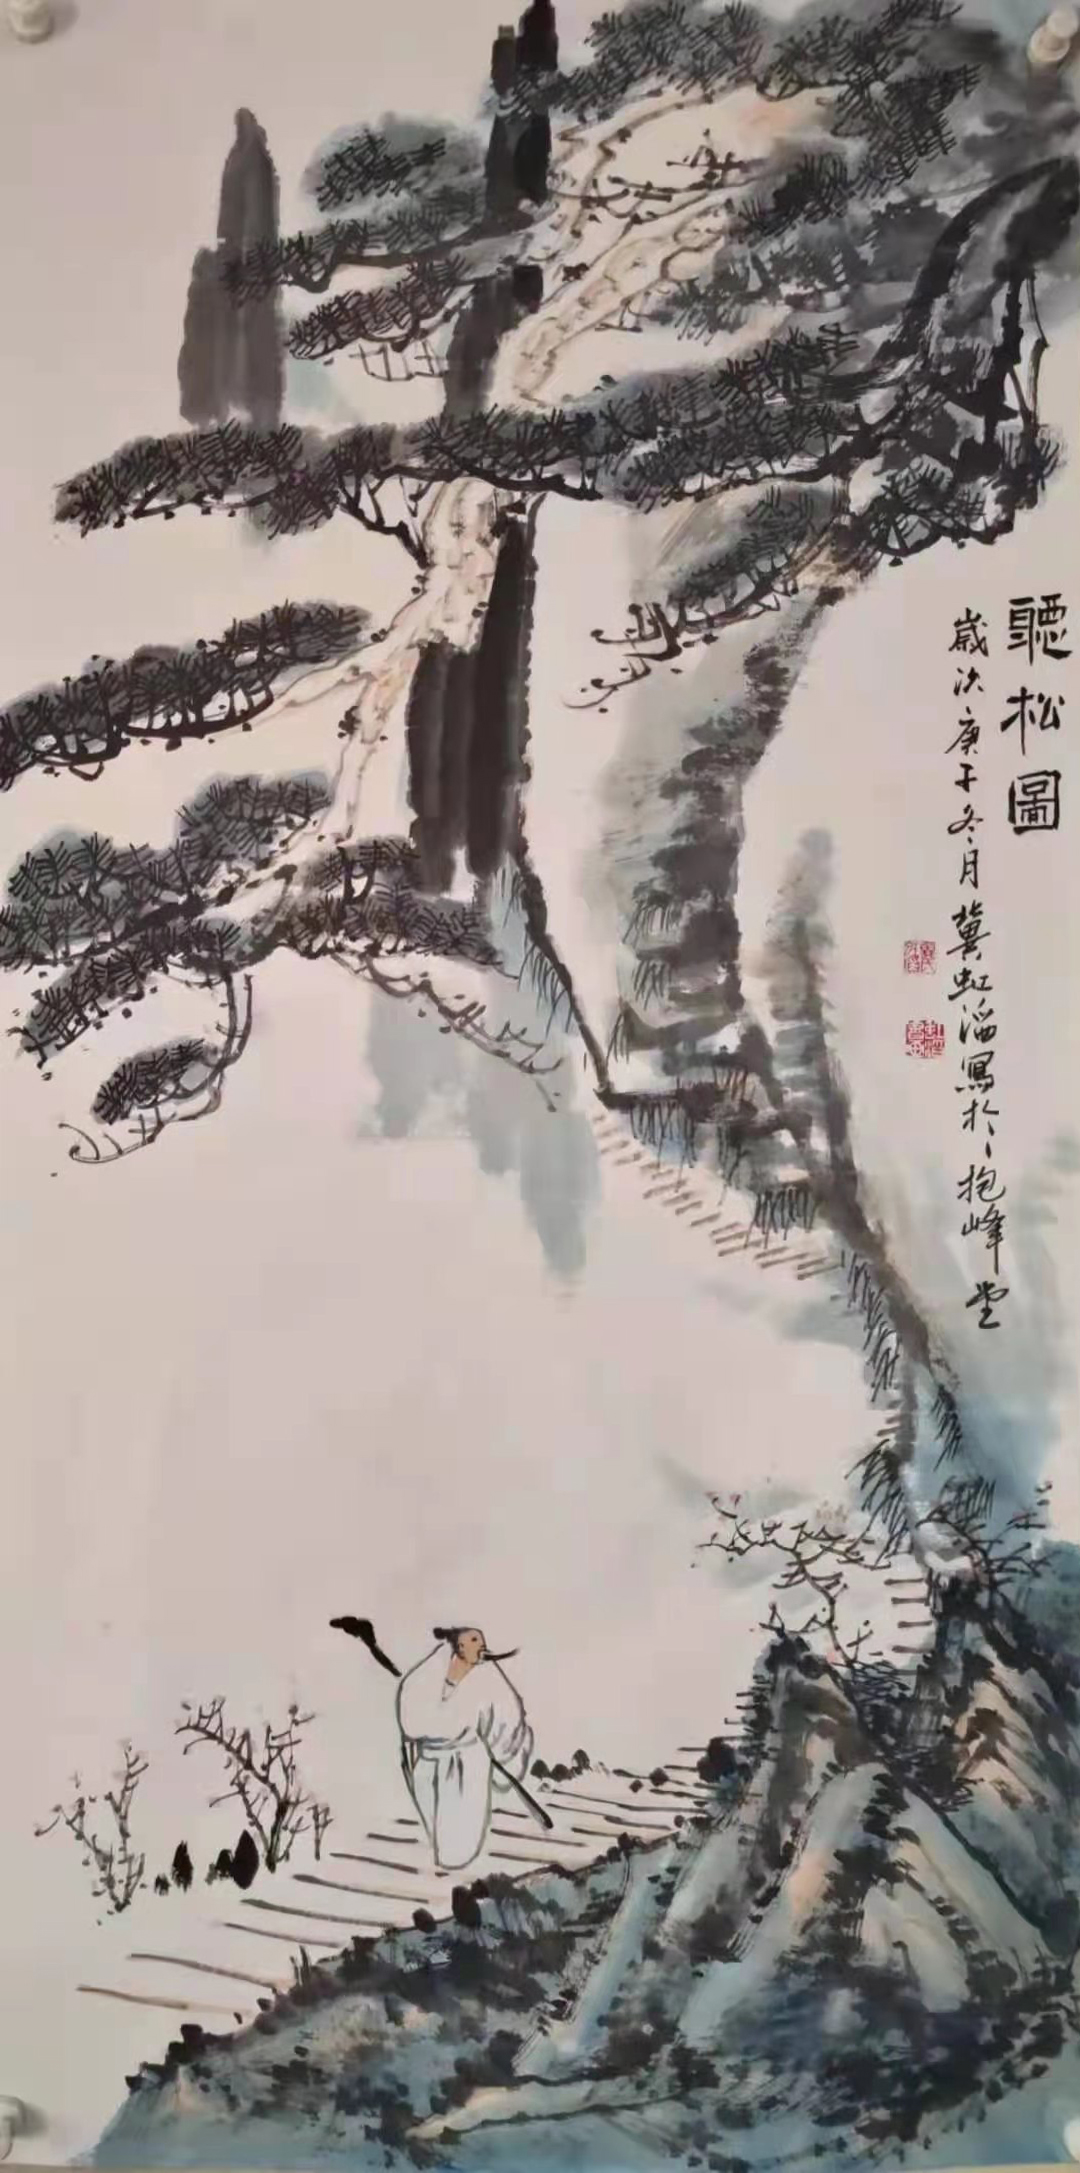 聽松圖
歲次庚子冬月冀虹滔寫於抱峰堂